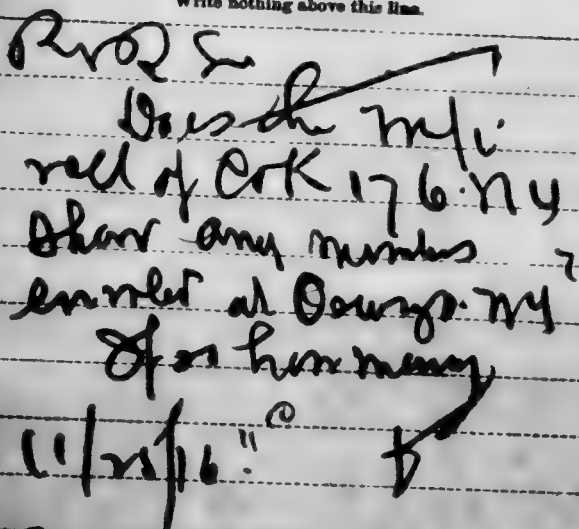 Write nothing above this line.
R & R Su
Does the m/i
roll of Co K 176. N Y
show any members
enrolled at Oswego. NY
If so how many
11/21/16